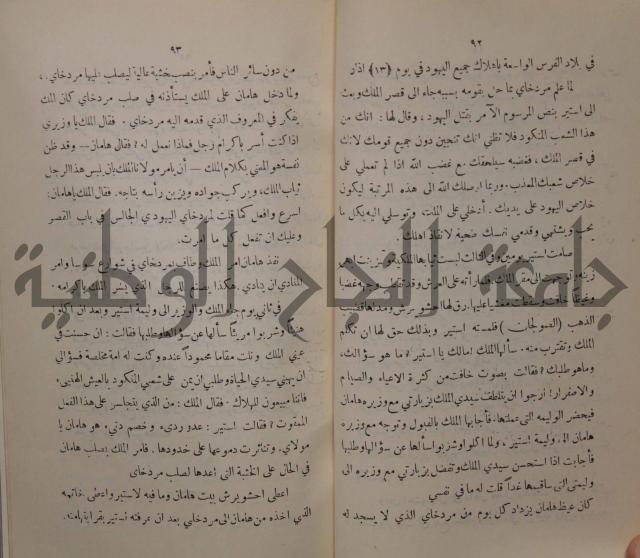 ٩٢
في بلاد الفرس الواسعة باهلاك جميع اليهود في يوم (١٣) اذار
لما علم مردخاي بما حل بقومه بسببه جاء الى قصر الملك وبعث
الى استير بنص المرسوم الآمر بقتل اليهود ، وقال لها : انك من
هذا الشعب المنكود فلا تظني انك تنجين دون جميع قومك لانك
في قصر الملك ، فغضبه سيلحقك مع غضب الله اذا لم تعملي على
خلاص شعبك المعذب وربما اوصلك الله الى هذه المرتبة ليكون
خلاص اليهود على يديك . أدخلي على الملك وتوسلي اليه بكل ما
يحب ويشتهي وقدمي نفسك ضحية لانقاذ اهلك .
صامت استير يومين وفي الثالث لبست ثيابها الملكية وتزينت ابهى
زينة
الذهب (الصولجان) فلمسته استير وبذلك حق لها ان تكلم
الملك وتقترب منه . سألها الملك : مالك يا استير ؟ ما هو سؤالك ،
وما هو طلبك ؟ فقالت بصوت خافت من كثرة الاعياء والصيام
والاصفرار : ارجوا ان يتلطف سيدي الملك بزيارتي مع وزيره هامان
فيحضر الوليمه التى عملتها . فأجابها الملك بالقبول وتوجه مع وزيره
هامان الى وليمة استير . ولما اكلوا وشربوا سألها عن سؤالها وطلبها
فأجابت اذا استحسن سيدي الملك وتفضل بزيارتي مع وزيره الى
وليمتي التى ساقيمها غداً قلت له ما في نفسي
كان غيظ هامان يزداد كل يوم من مردخاي الذي لا يسجد له
٩٣
من دون سائر الناس فأمر بنصب خشبة عالية ليصلب عليها مردخاي .
ولما دخل هامان على الملك يستأذنه في صلب مردخاي كان الملك
يفكر في المعروف الذي قدمه اليه مردخاي . فقال الملك يا وزيري
اذا كنت أسر باكرام رجل فماذا نعمل له ؟ فقال هامان — وقد ظن
نفسه هو المعني بكلام الملك — أن يأمر مولانا الملك بان يلبس هذا الرجل
ثياب الملك، ويركب جواده ويزين رأسه بتاجه. فقال الملك ياهامان:
اسرع وافعل كما قلت لمردخاي اليهودي الجالس في باب القصر
وعليك ان تفعل كل ما أمرت.
نفذ هامان امر الملك وطاف بمردخاي في شوارع سوسا وامر
المنادي ان ينادي . هكذا يصنع للرجل الذي يسر الملك باكرامه .
في ثاني يوم جاء الملك والوزير الى وليمة استير وبعد ان اكلوا
هنيئاً وشربوا مريئاً سألها عن سؤالها وطلبها فقالت : ان حسنت في
عيني الملك ونلت مقاما محموداً عنده وكنت له امة مخلصة فسؤالي
ان يهبني سيدي الحياة وطلبي ان يمن على شعبي المنكود بالعيش الهنيء
فاننا مبيعون للهلاك . فقال الملك : من الذي يتجاسر على هذا الفعل
الممقوت ؟ فقالت استير : عدو رديء وخصم دنيء هو هامان يا
مولاي. وتناثرت دموعها على خدودها . فامر الملك بصلب هامان
في الحال على الخشبة التى أعدها لصلب مردخاى
اعطى احشويرش بيت هامان وما فيه لاستير واعطى خاتمه
الذي اخذه من هامان الى مردخاي بعد ان عرفته استير بقرابتها منه.
جامعة النجاح الوطنية